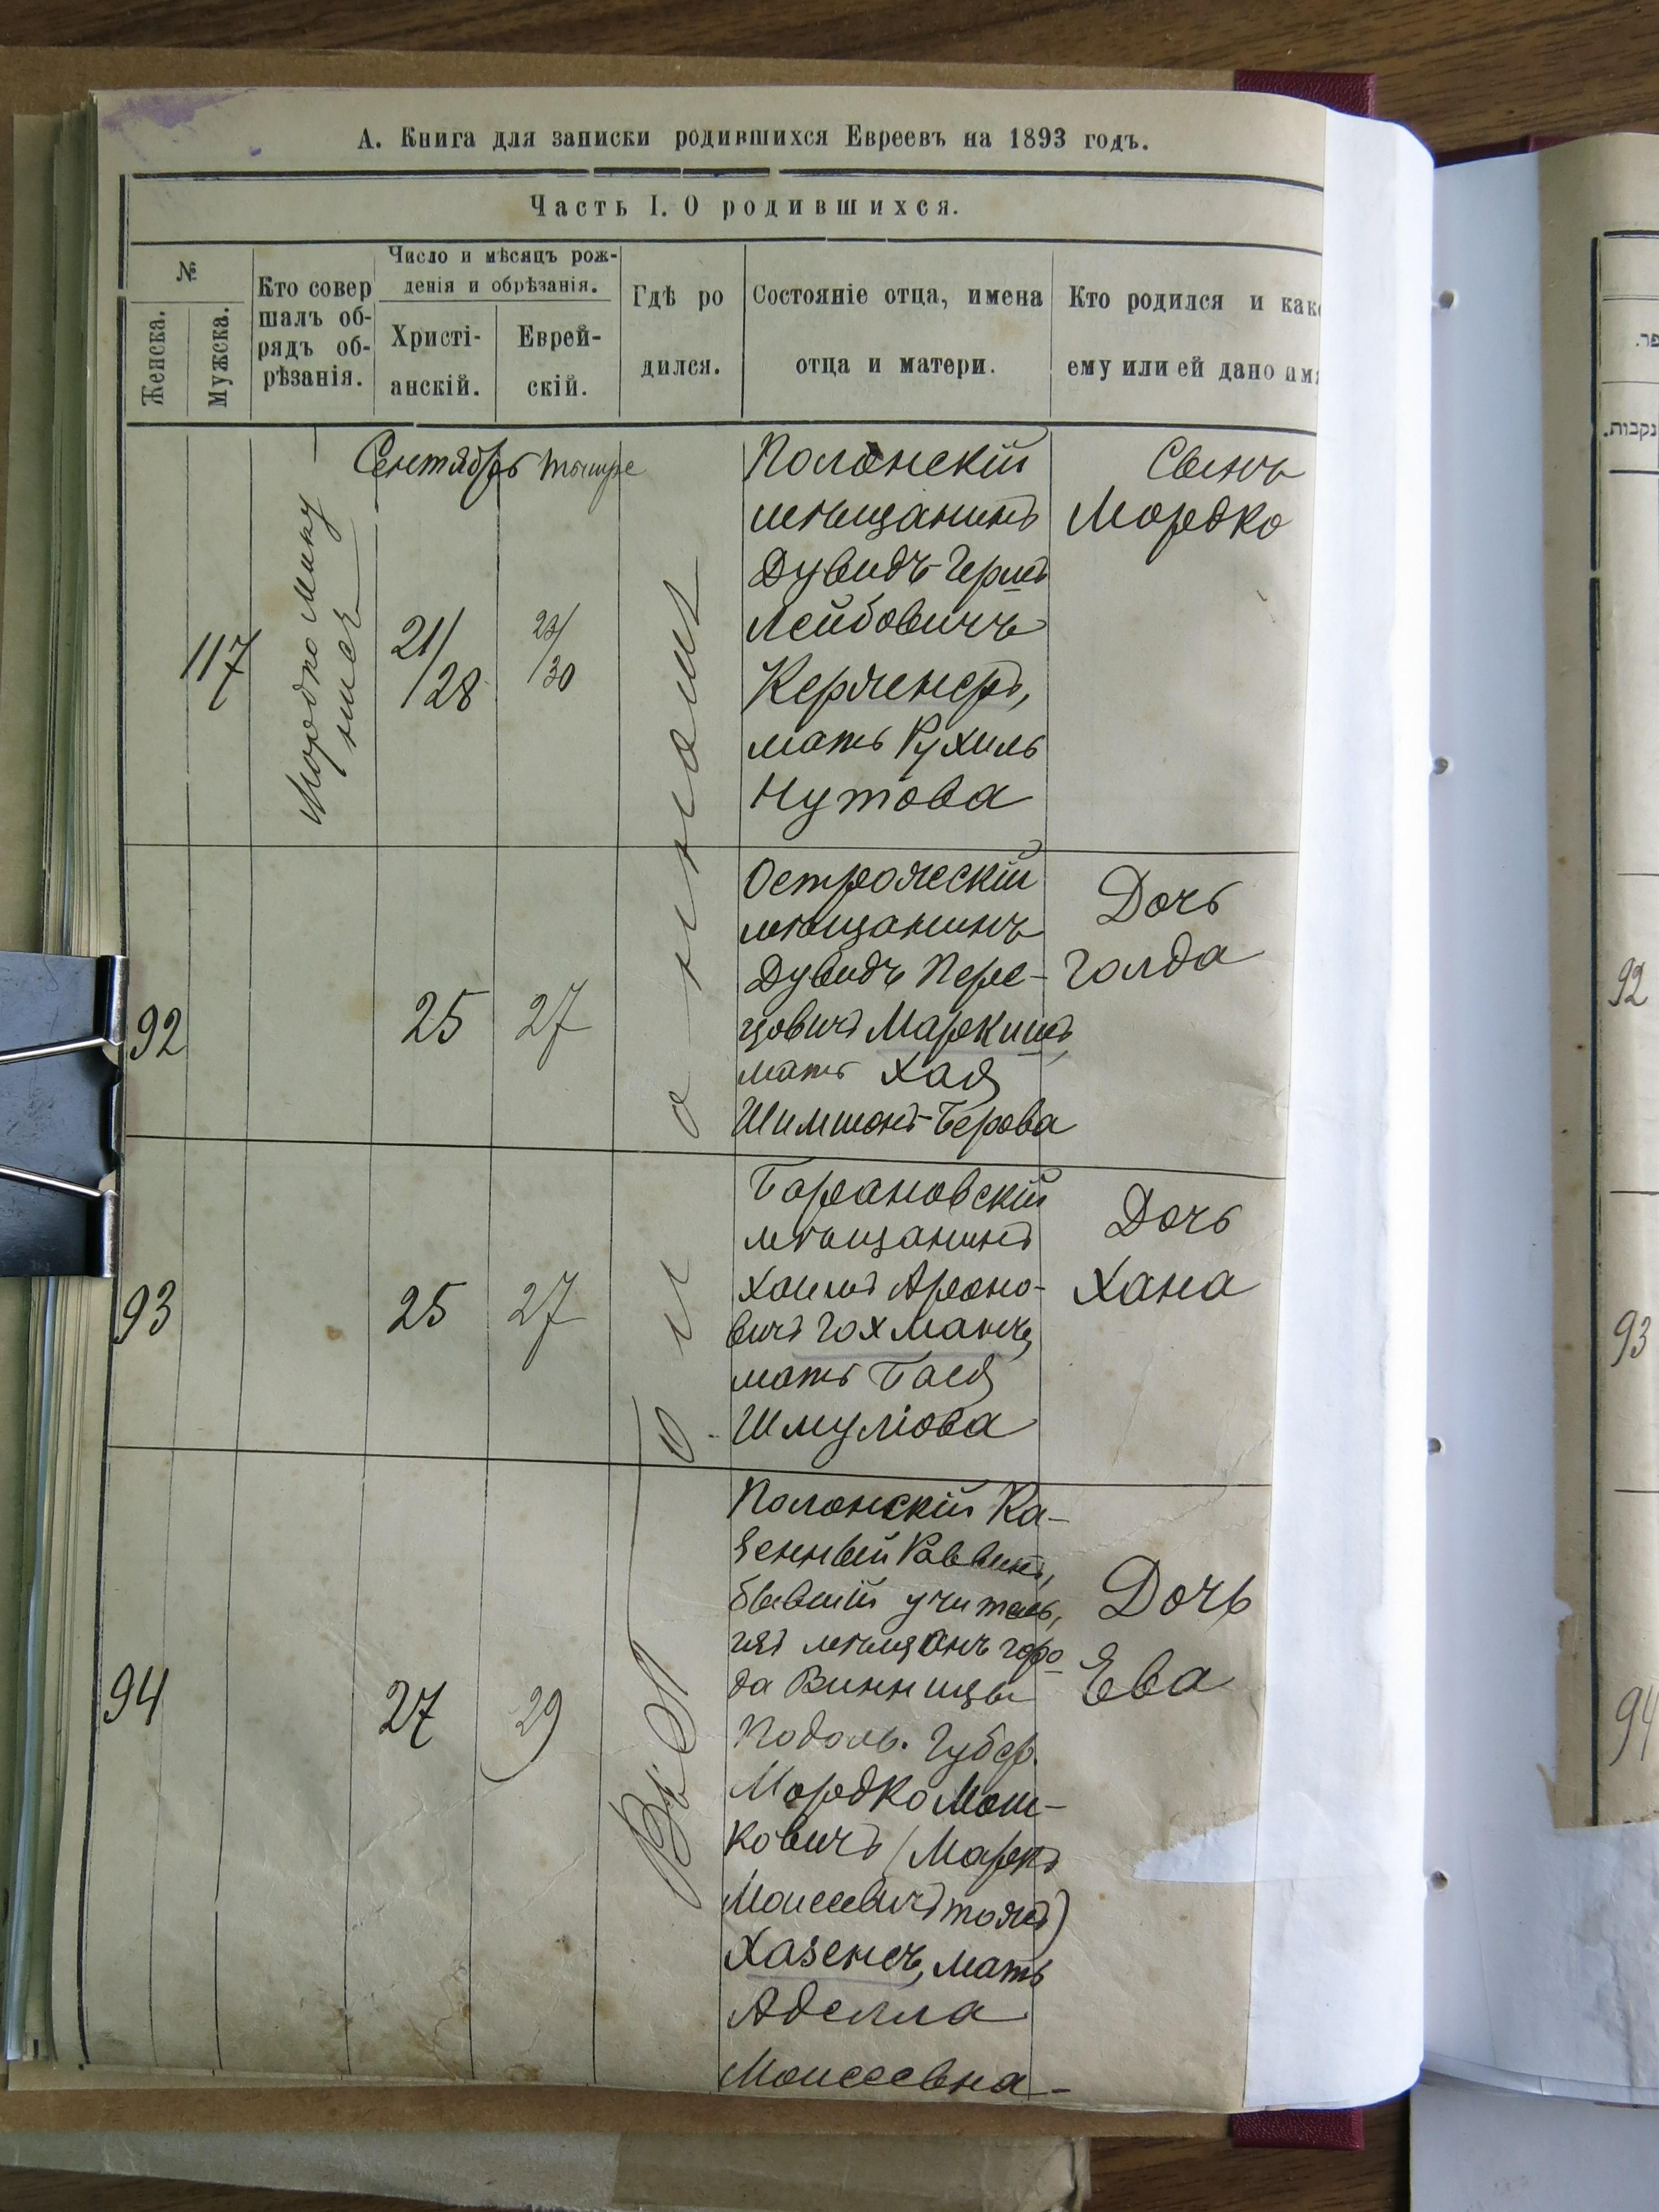 А. Книга для записки родившихся Евреевъ на 1893 годъ.
Часть I. О родившихся.
№
Женска.
Мужска.
Кто совер
шалъ об-
рядъ об-
рѣзанія.
Число и мѣсяцъ рож-
денія и обрѣзанія.
Христі-
анскій.
Еврей-
скій.
Гдѣ ро
дился.
Состояніе отца, имена
отца и матери.
Кто родился и как
ему или ей дано им
Сентябрь
117
Мордко
21/
/28
/30
Полонскій
мѣщанинъ
Дувидъ-Гершъ
Лейбовичъ
Керженеръ,
мать Рухиль
Нутова
Сынъ
Мордко
92
25
27
Острожскій
мѣщанинъ
Дувидъ Пере-
цовичъ Маркишъ,
мать Хая
Шимшонъ-Берова
Дочь
Голда
93
25
27
Барановскій
мѣщанинъ
Хаимъ Ароно-
вичъ Гохманъ,
мать Бася
Шмулiова
Дочь
Хана
94
27
29
Въ м. Полонномъ
Полонскій Ка-
зенный Раввинъ,
бывшій учитель,
изъ мѣщанъ горо
да Винницы
Подоль. Губер.
Мордко Мош-
ковичъ (Маркъ
Моисеевичъ тожъ)
Хазенъ, мать
Аделла
Моисеевна-
Дочь
Ева
נקבות.
92
93
94